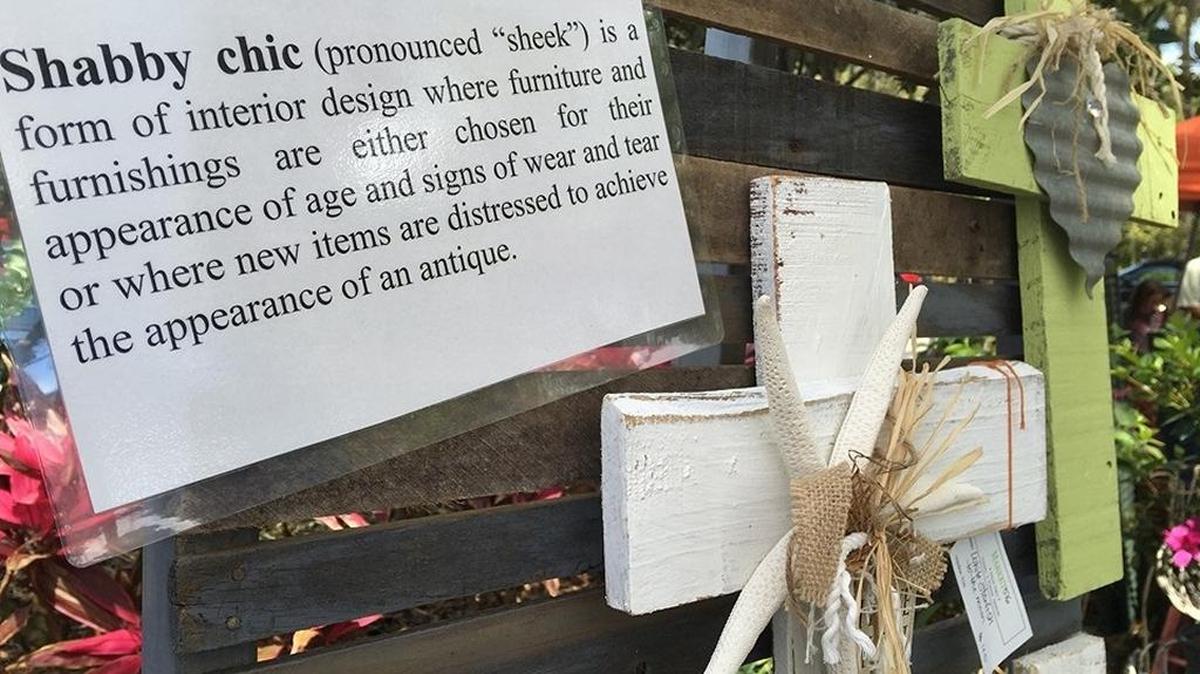 Shabby chic (pronounced “sheek”) is a
form of interior design where furniture and
furnishings are either chosen for their
appearance of age and signs of wear and tear
or where new items are distressed to achieve
the appearance of an antique.